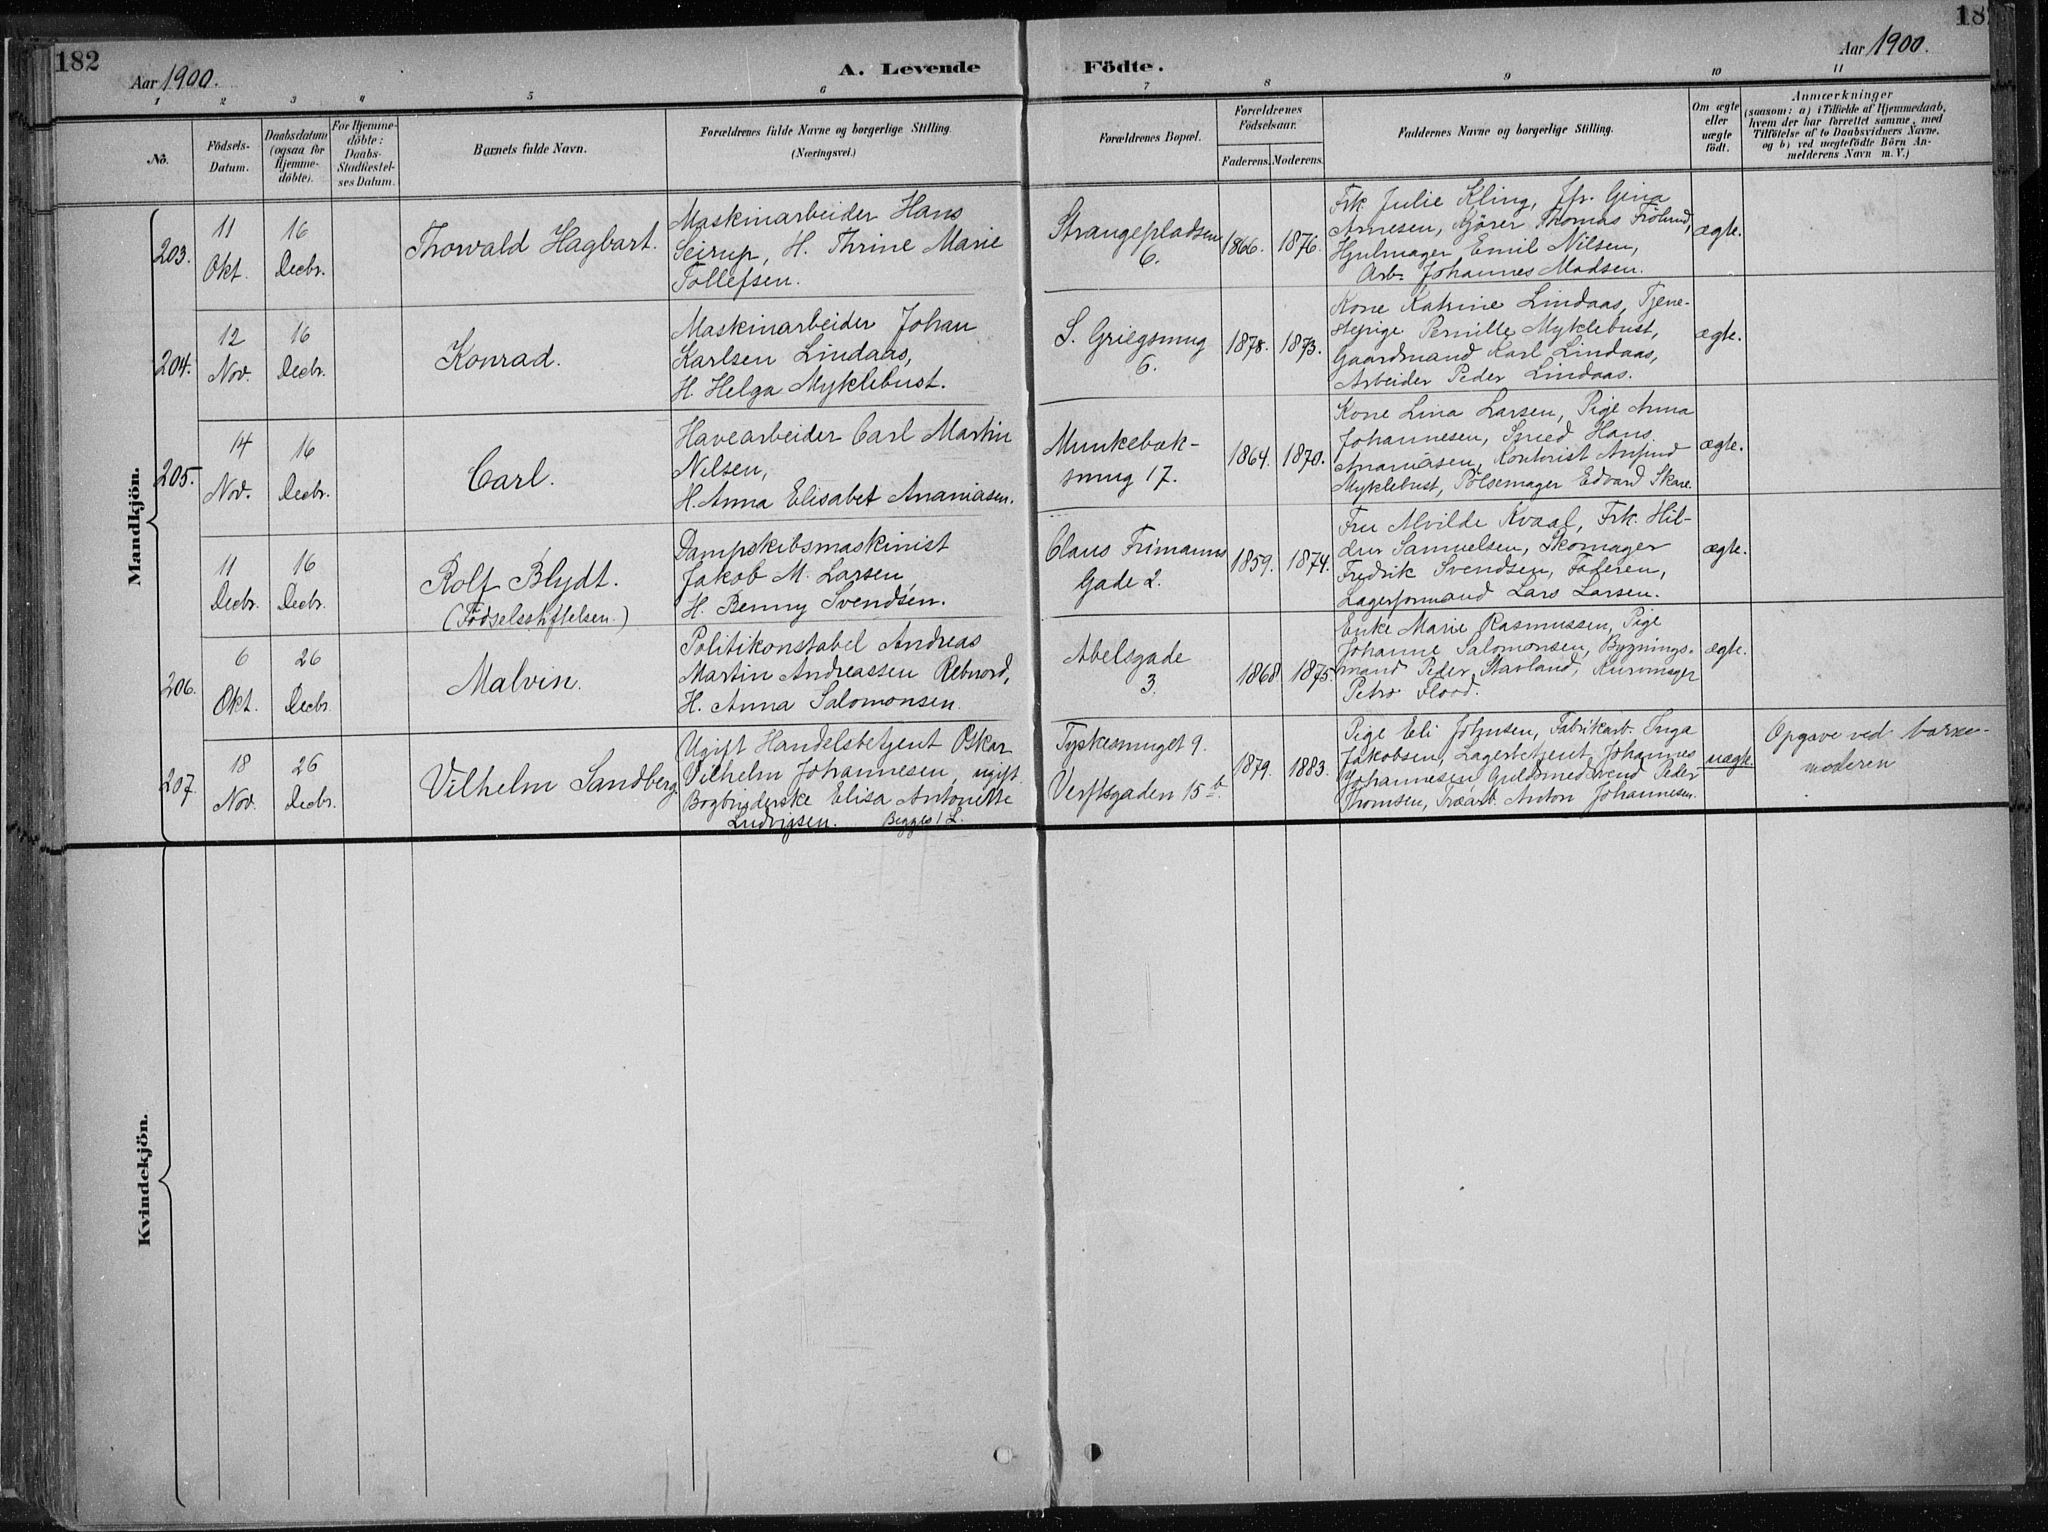 182
Aar 1900.
A. Levende Födte.
Aar 1900.
18
1 2 3 4 5 6 7 8 9 10 11
No.
Födsels-
Datum.
Daabsdatum
(ogsaa for
Hjemme-
döbte).
For Hjemme-
döbte:
Daabs-
Stadfæstel-
ses Datum.
Barnets fulde Navn.
Forældrenes fulde Navne og borgerlige Stilling.
(Næringsvei.)
Forældrenes Bopæl.
Forældrenes
Födselsaar.
Faderens. Moderens.
Faddernes Navne og borgerlige Stilling.
Om ægte
eller
uægte
födt.
Anmærkninger
(saasom: a) i Tilfælde af Hjemmedaab,
hvem der har forrettet samme, med
Tilföielse af to Daabsvidners Navne.
og b) ved uægtefödte Börn An-
melderens Navn m. V.)
Mandkjön.
203.
11
Okt.
16
Decbr.
Thorvald Hagbart.
Maskinarbeider Hans
Seirup, H. Thrine Marie
Tollefsen.
Strangepladsen
6.
1866. 1876.
Frk. Julie Kling, Jfr. Gina
Arnesen, Kjörer Thomas Frölund,
Hjulmager Emil Nilsen,
Arb. Johannes Madsen.
ægte.
204.
12
Nov.
16
Decbr.
Konrad.
Maskinarbeider Johan
Karlsen Lindaas,
H. Helga Myklebust.
S. Griegsmug
6.
1878. 1873.
Kone Katrine Lindaas, Tjene-
stepige Pernille Myklebust,
Gaardmand Karl Lindaas,
Arbeider Peder Lindaas.
ægte.
205.
14
Nov.
16
Decbr.
Carl.
Havearbeider Carl Martin
Nilsen,
H. Anna Elisabet Ananiasen.
Munkebæk-
smug 17.
1864. 1870.
Kone Lina Larsen, Pige Anna
Johannesen, Smed Hans
Ananiasen, Kontorist Anfind
Myklebust, Pölsemager Edvard Skare.
ægte.
11
Decbr.
16
Decbr.
Rolf Blydt.
(Födselsstiftelsen.)
Dampskibsmaskinist
Jakob M. Larsen,
H. Benny Svendsen.
Claus Frimanns
Gade 2.
1859. 1874.
Fru Alvilde Kvaal, Frk. Hil-
dur Samuelsen, Skomager
Fredrik Svendsen, Faderen,
Lagerformand Lars Larsen.
ægte.
206.
6
Okt.
26
Decbr.
Malvin.
Politikonstabel Andreas
Martin Andreassen Rebnord,
H. Anna Salomonsen.
Abelsgade
3.
1868 1875.
Enke Marie Rasmussen, Pige
Johanne Salomonsen, Bygnings-
mand Peder Stavland, Kurvmager
Petro Flood.
ægte.
207.
18
Nov.
26
Decbr.
Vilhelm Sandberg
Ugift Handelsbetjent Oskar
Vilhelm Johannesen, ugift
Bogbinderske Elisa Antonette
Ludvigsen. Begges 1 L.
Tyskesmuget 9.
Verftsgaden 15 b.
1879. 1883.
Pige Eli Johnsen, Fabrikarb. Inga
Jakobsen, Lagerbetjent Johannes
Johannesen, Guldsmedsvend Peder
Thomsen, Træarb. Anton Johannesen.
uægte.
Opgave ved barne-
moderen
Kvindekjön.